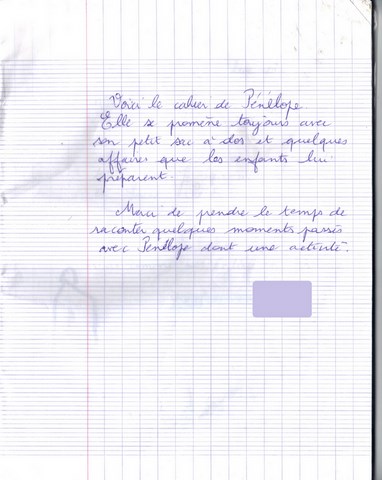 Voici le cahier de Pénélope
Elle se promène toujours avec
son petit sac à dos et quelques
affaires que les enfants lui
préparent.
Merci de prendre le temps de
raconter quelques moments passés
avec Pénélope dont une activité.